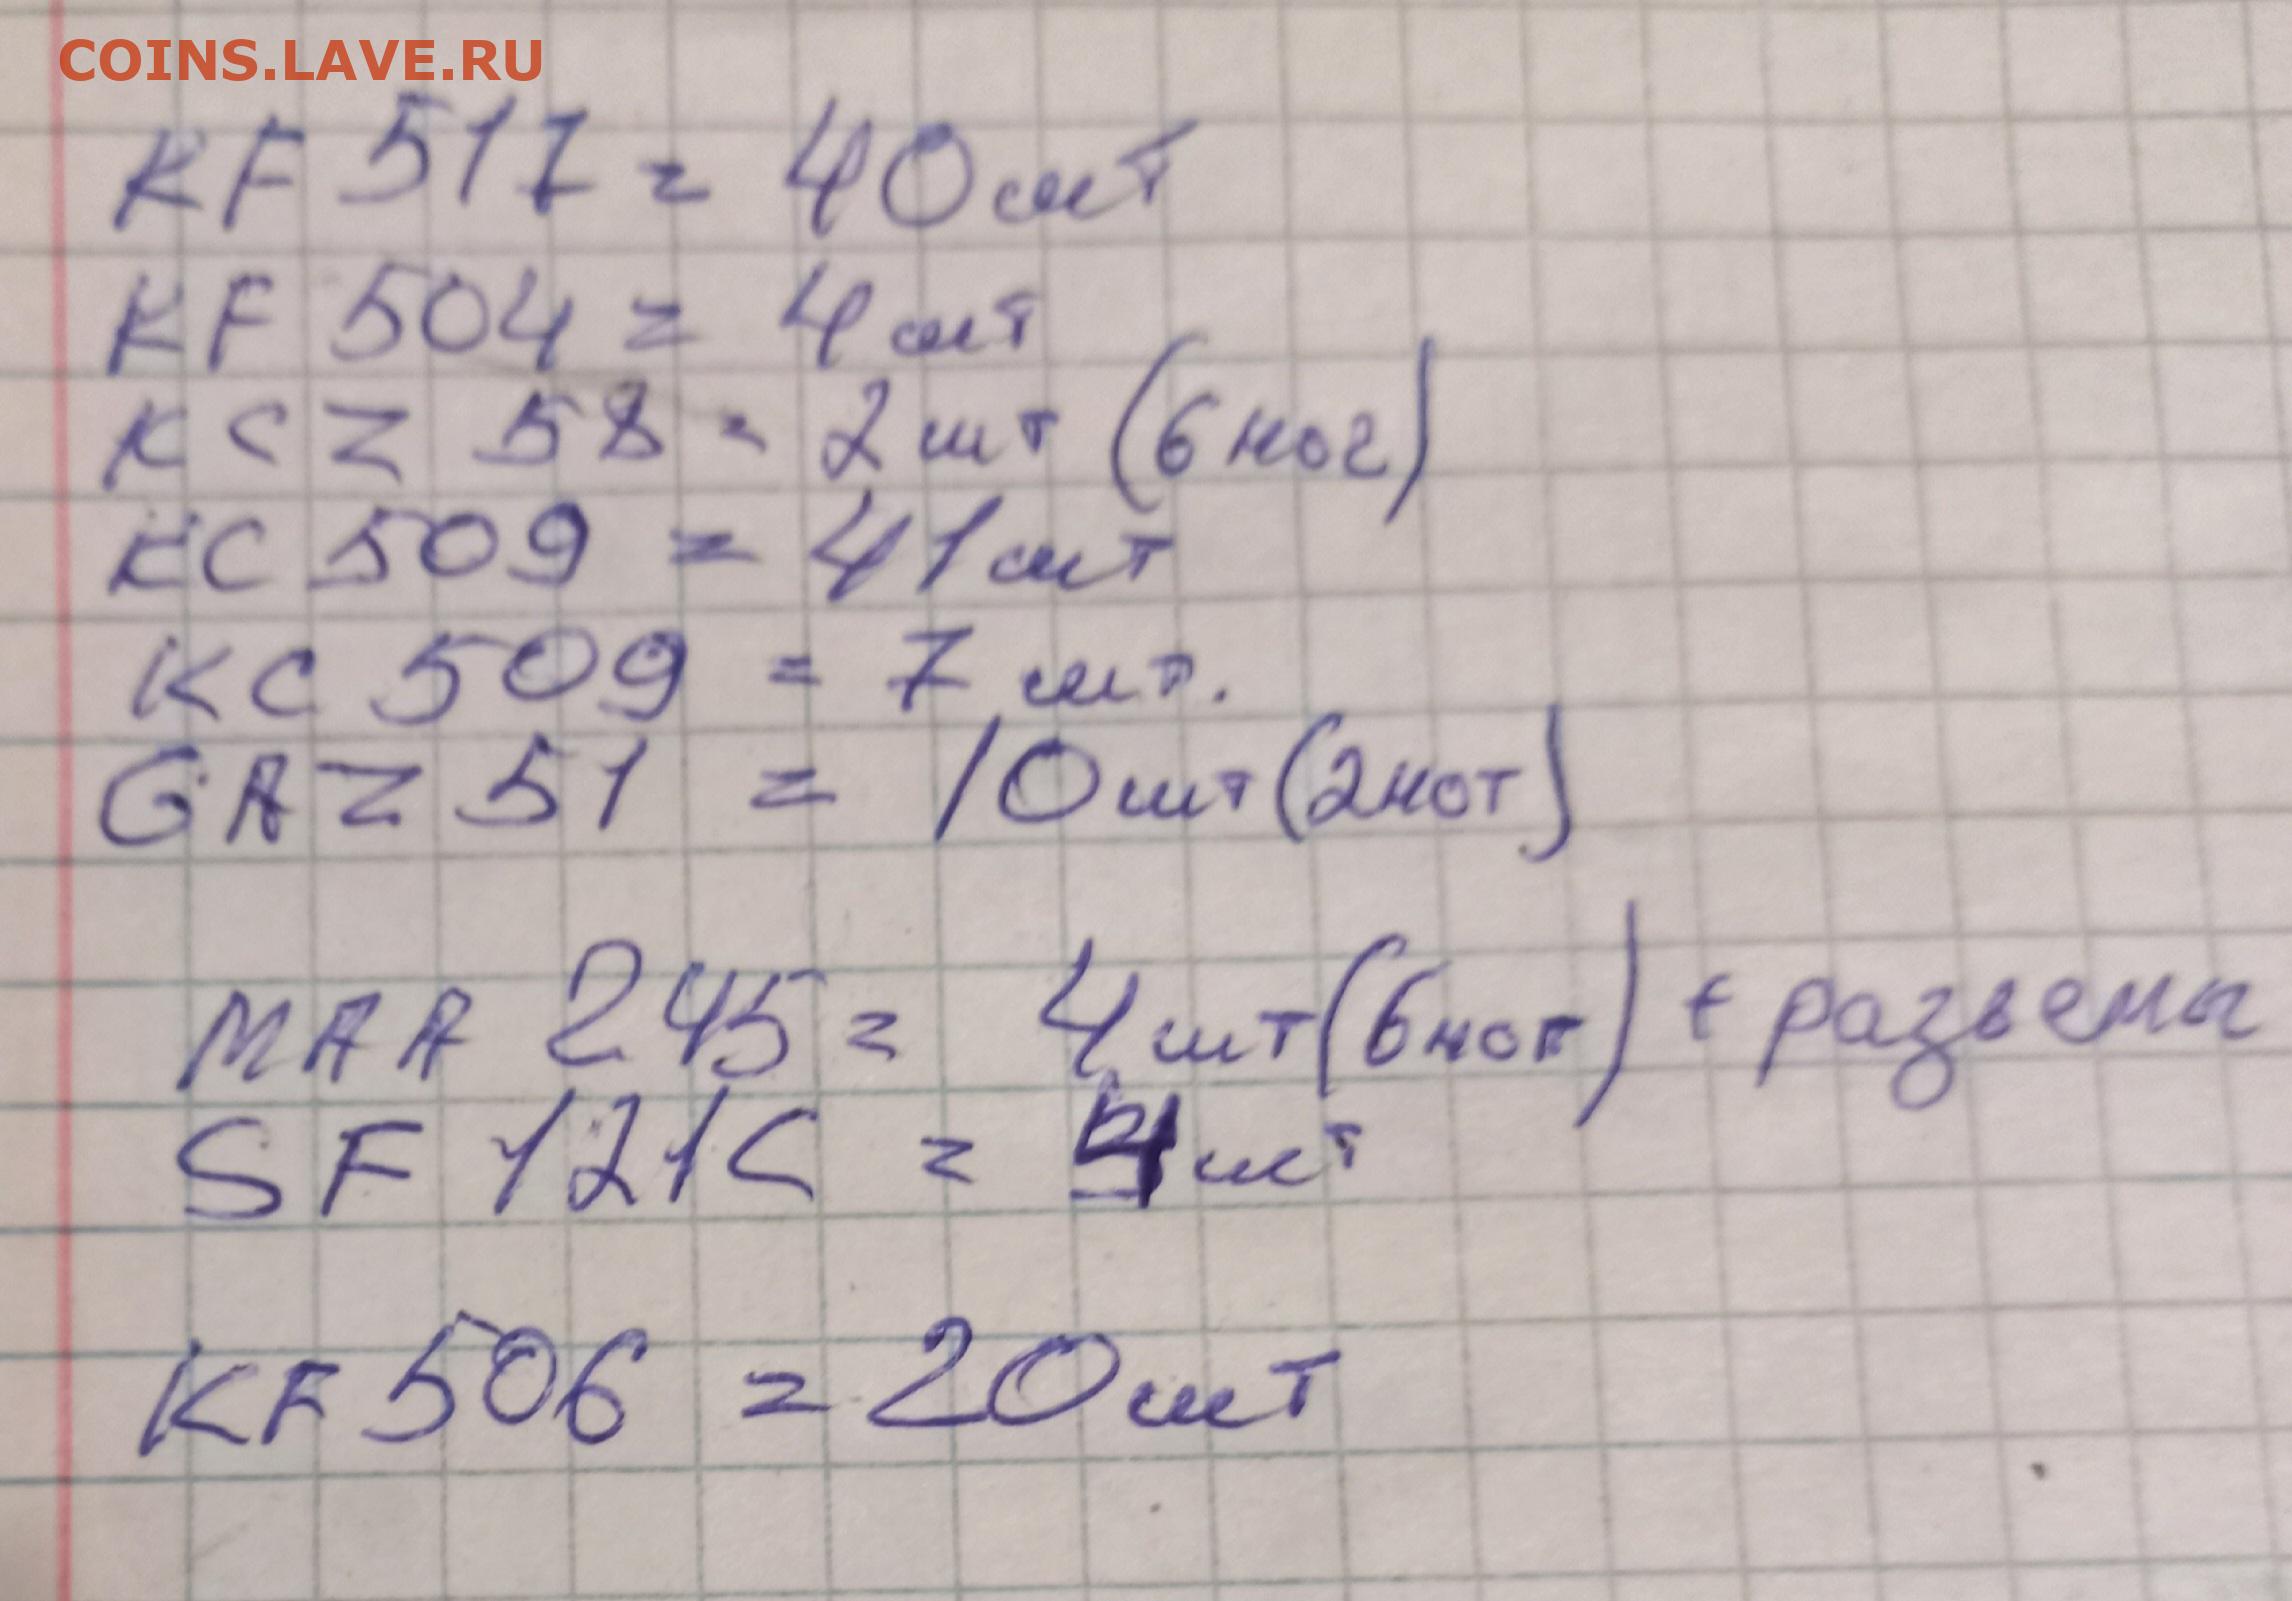 COINS.LAVE.RU
KF 517 = 40шт
KF 504 = 4шт
KCZ 58 = 2шт (6 ног)
KC 509 = 41шт
KC 509 = 7 шт.
GAZ 51 = 10шт (2 ног)
MAA 245 = 4шт (6 ног) + разьемы
SF 121C = шт
KF 506 = 20шт